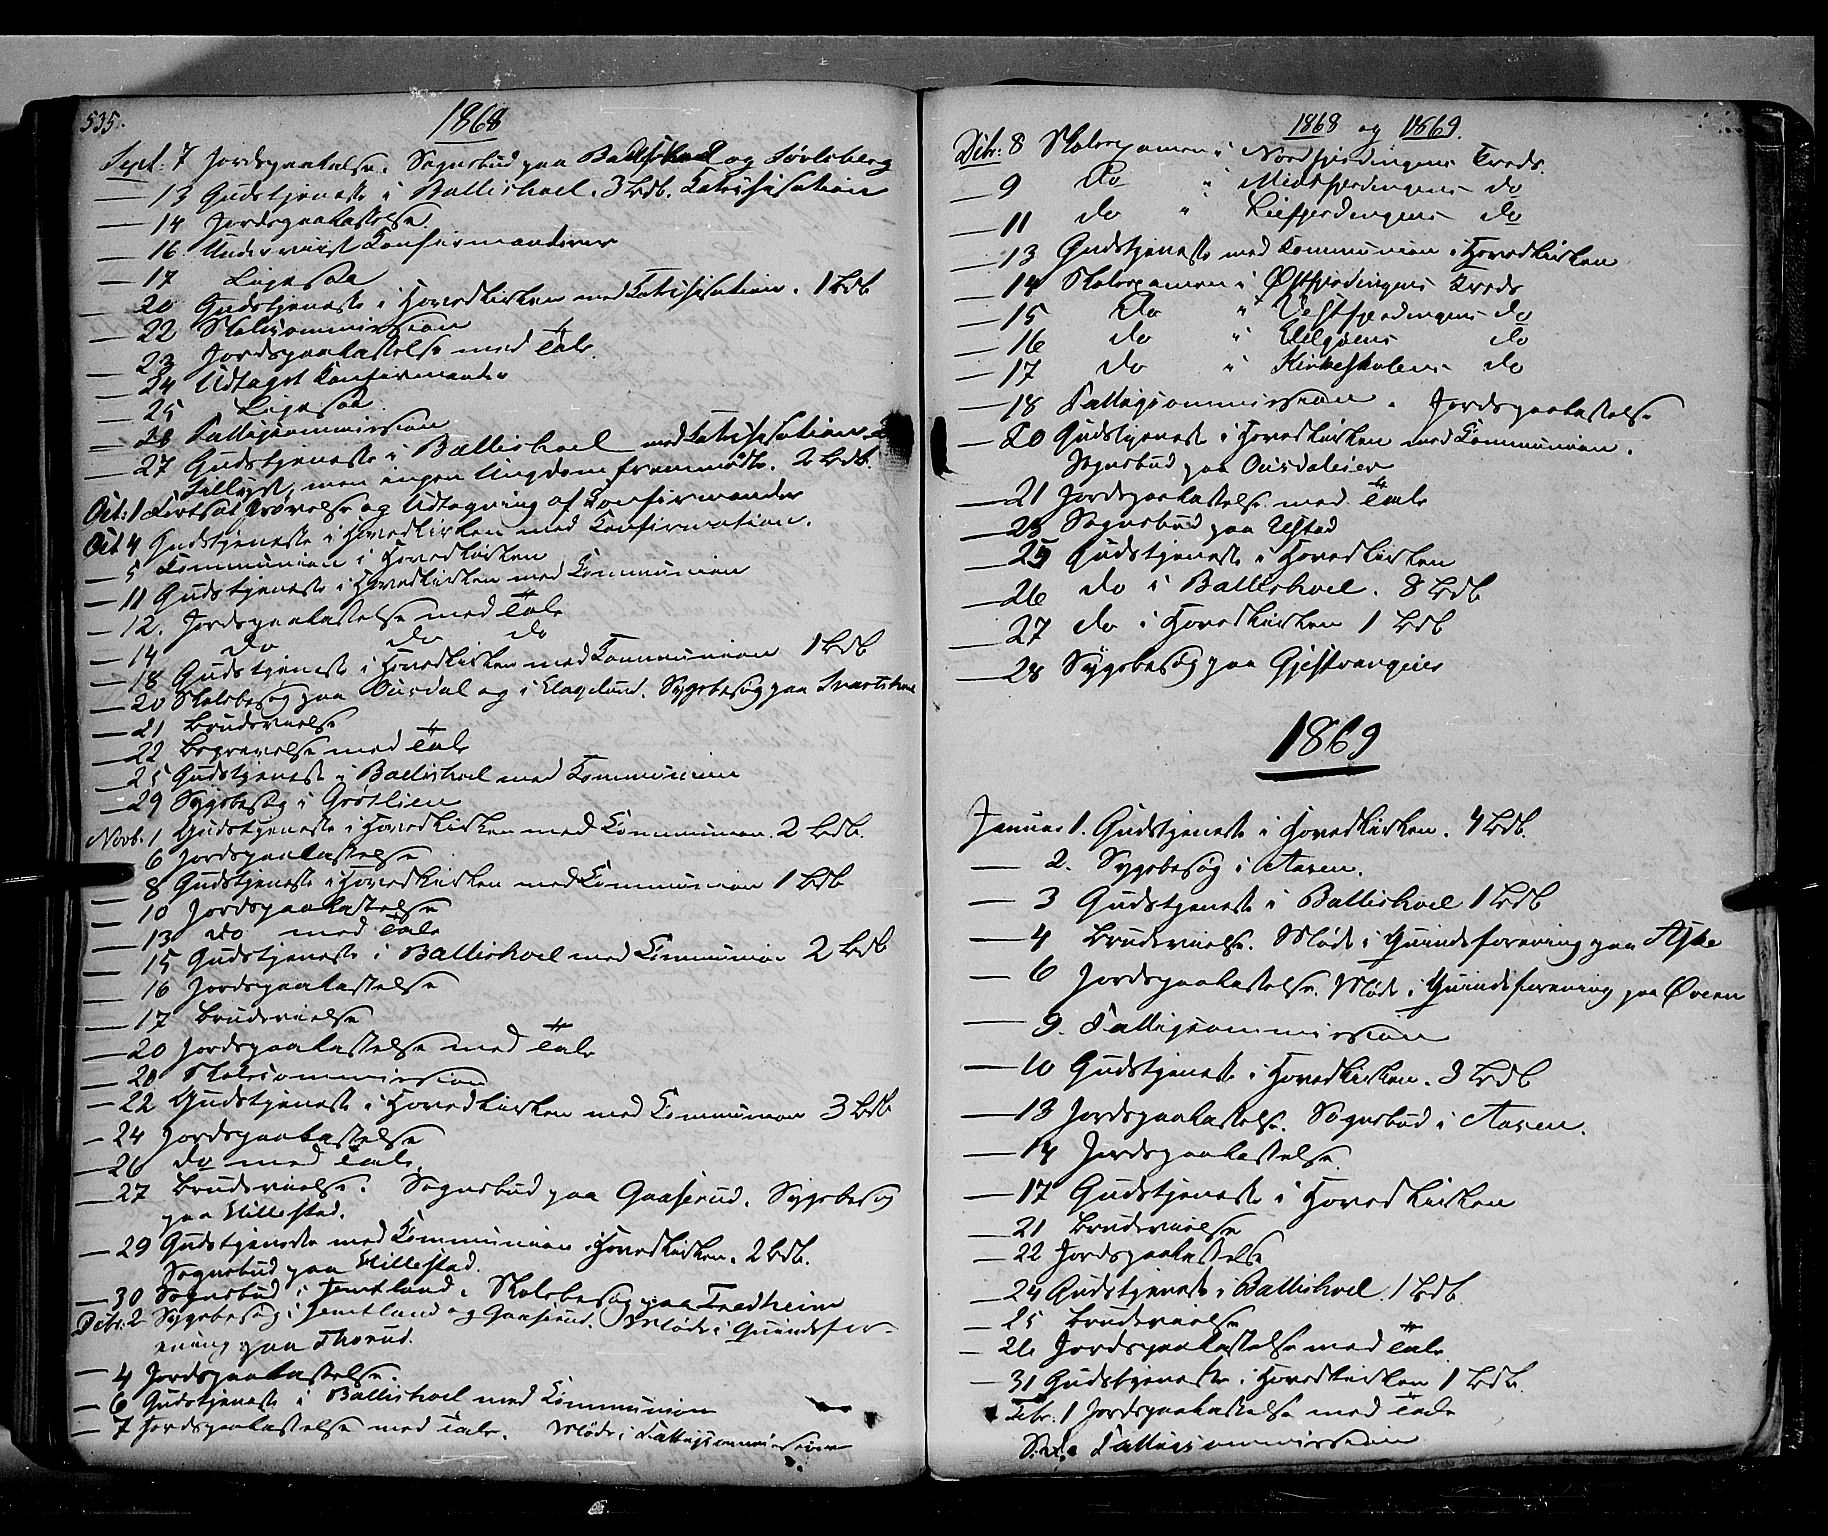 535.
1868
Sept: 7 Jordspaakastelse. Sognebud paa Ballishoel og Løvlsberg
— 13 Gudstjeneste i Ballishoel. 3 Bdb. Katechisation
— 14 Jordspaakastelse.
— 16 Underviist Konfirmanderne
— 17 Ligesaa
— 20 Gudstjeneste i Hovedkirken med Katechisation. 1 Bdb
— 22 Skolecommission
— 23 Jordspaakastelse med Tale
— 24 Udtaget Konfirmander
— 25 Ligesaa.
— 26 Fattigcommission
— 27 Gudstjeneste i Ballishoel med Katechisation
tillyst, men ingen Ungdom fremmødte. 2 Bdb.
Oct: 1 Fortsat Prøvelse og Udtagning af Konfirmander
Oct 4 Gudstjeneste i Hovedkirken med Confirmation.
— 5 Communion i Hovedkirken
— 11 Gudstjeneste i Hovedkirken med Communion
— 12. Jordspaakastelse med Tale
— 14 do do do
— 18 Gudstjeneste i Hovedkirken med Communion 1 Bdb
— 20 Skolebesøg paa Ousdal og i Haglund. Sygebesøg paa
— 21 Brudevielse
— 22 Begravelse med Tale
— 25 Gudstjeneste i Ballishoel med Communion
— 29 Sygebesøg i Grøtlien
Novb. 1 Gudstjeneste i Hovedkirken med Communion. 2 Bdb.
6 Jordspaakastelse
— 8 Gudstjeneste i Hovedkirken med Communion 1 Bdb
— 10 Jordspaakastelse
— 13 do med Tale
— 15 Gudstjeneste i Ballishoel med Communion 2 Bdb
— 16 Jordspaakastelse
— 17 Brudevielse
— 20 Jordspaakastelse med Tale
— 20 Skolecommission
— 22 Gudstjeneste i Hovedkirken med Communion 3 Bdb
— 24 Jordspaakastelse
— 26 do med Tale
— 27 Brudevielse. Sognebud paa Gaaserud. Sygebesøg
paa Hillestad.
— 29 Gudstjeneste med Communion i Hovedkirken. 2 Bdb.
Sognebud paa Hillestad.
— 30 Sognebud i Jemtland. Skolebesøg paa Fredheim
Dcbr. 2 Sygebesøg i Jemtland og Gaaserud. Møde i Quindefor-
ening paa Thorud.
— 4 Jordspaakastelse.
— 6 Gudstjeneste i Ballishoel med Communion
— 7 Jordspaakastelse med Tale. Møde i Fattigcommissionen
1868 og 1869.
Dcbr. 8 Skoleexamen i Nordfjerdingens Kreds.
— 9 Do " Midtfjerdingens do
— 11 do " Liefjerdingens do
— 13 Gudstjeneste med Communion i Hovedkirken
— 14 Skoleexamen i Østfjerdingens Kreds
— 15 Do " Vestfjerdingens do
— 16 do " do
— 17 do " Kirkeskolens do
— 18 Fattigcommission. Jordspaakastelse
— 20 Gudstjeneste i Hovedkirken med Communion.
Sognebud paa Ousdaleier
— 21 Jordspaakastelse med Tale
— 23 Sognebud paa Ulstad
— 25 Gudstjeneste i Hovedkirken
— 26 do i Ballishoel. 8 Bdb
— 27 do i Hovedkirken 1 Bdb
— 28 Sygebesøg paa Gjestvangeier
1869
Januar 1. Gudstjeneste i Hovedkirken. 4 Bdb.
— 2. Sygebesøg i Aasen.
— 3 Gudstjeneste i Ballishoel 1 Bdb
— 4 Brudevielse. Møde i Quindeforening paa Aske
— 6 Jordspaakastelse. Møde i Quindeforening paa Øveren
— 9. Fattigcommission
— 10 Gudstjeneste i Hovedkirken. 3 Bdb
— 13 Jordspaakastelse. Sognebud i Aasen.
— 14 Jordspaakastelse
— 17 Gudstjeneste i Hovedkirken
— 21 Brudevielse
— 22 Jordspaakastelse
— 24 Gudstjeneste i Ballishoel. 1 Bdb
— 25 Brudevielse
— 26 Jordspaakastelse med Tale
— 31 Gudstjeneste i Hovedkirken 1 Bdb.
Febr. 1 Jordspaakastelse med Tale
S. D. Fattigcommission